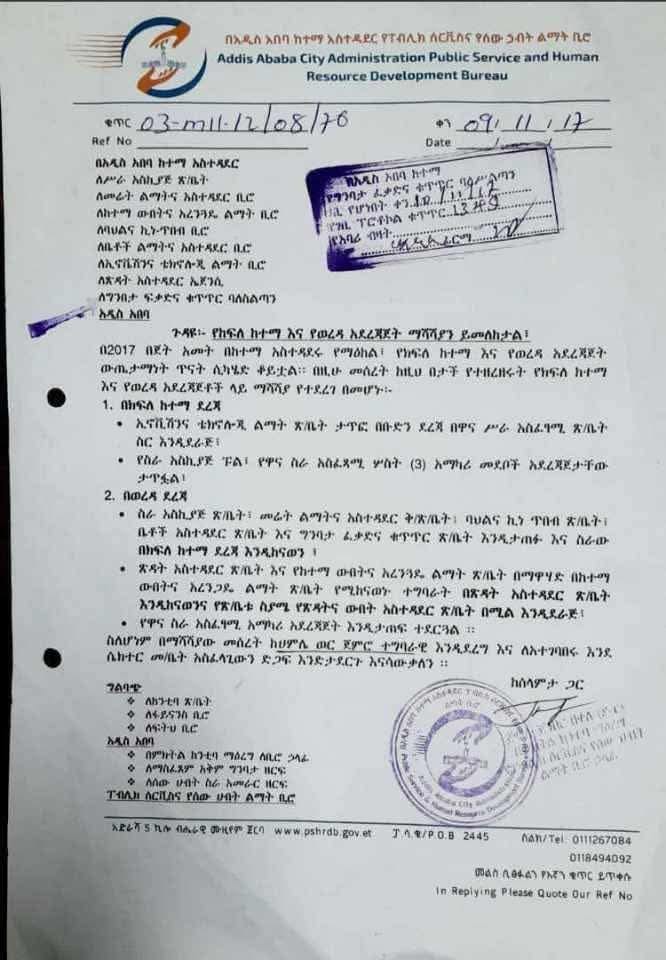 በአዲስ አበባ ከተማ አስተዳደር የፐብሊክ ሰርቪስና የሰው ኃብት ልማት ቢሮ
Addis Ababa City Administration Public Service and Human
Resource Development Bureau
ቁጥር 03-m11-12/08/76
Ref No
ቀን 09/11/17
Date
በአዲስ አበባ ከተማ አስተዳደር
ለሥራ አስኪያጅ ጽ/ቤት
ለመሬት ልማትና አስተዳደር ቢሮ
ለከተማ ውበትና አረንጓዴ ልማት ቢሮ
ለባህልና ኪነ-ጥበብ ቢሮ
ለቤቶች ልማትና አስተዳደር ቢሮ
ለኢኖቬሽንና ቴክኖሎጂ ልማት ቢሮ
ለጽዳት አስተዳደር ኤጀንሲ
ለግንበታ ፍቃድና ቁጥጥር ባለስልጣን
አዲስ አበባ
በአዲስ አበባ ከተማ
የግንባታ ፈቃድና ቁጥጥር ባለሥልጣን
ገቢ የሆነበት ቀን
የገቢ ፕሮቶኮል ቁጥር
የአባሪ ብዛት
ፊርማ
ጉዳዩ፡- የክፍለ ከተማ እና የወረዳ አደረጃጀት ማሻሻያን ይመለከታል፤
በ2017 በጀት አመት በከተማ አስተዳደሩ የማዕከል፣ የክፍለ ከተማ እና የወረዳ አደረጃጀት
ውጤታማነት ጥናት ሲካሄድ ቆይቷል። በዚሁ መሰረት ከዚህ በታች የተዘረዘሩት የክፍለ ከተማ
እና የወረዳ አደረጃጀቶች ላይ ማሻሻያ የተደረገ በመሆኑ፡-
1. በክፍለ ከተማ ደረጃ
• ኢኖቬሽንና ቴክኖሎጂ ልማት ጽ/ቤት ታጥፎ በቡድን ደረጃ በዋና ሥራ አስፈፃሚ ጽ/ቤት
ስር እንዲደራጅ፤
• የስራ አስኪያጅ ፑል፣ የዋና ስራ አስፈጻሚ ሦስት (3) አማካሪ መደቦች አደረጃጀታቸው
ታጥፏል፤
2. በወረዳ ደረጃ
• ስራ አስኪያጅ ጽ/ቤት፣ መሬት ልማትና አስተዳደር ቅ/ጽ/ቤት፣ ባህልና ኪነ ጥበብ ጽ/ቤት፣
ቤቶች አስተዳደር ጽ/ቤት እና ግንባታ ፈቃድና ቁጥጥር ጽ/ቤት እንዲታጠፉ እና ስራው
በክፍለ ከተማ ደረጃ እንዲከናወን ፤
• ጽዳት አስተዳደር ጽ/ቤት እና የከተማ ውበትና አረንጓዴ ልማት ጽ/ቤት በማዋሃድ በከተማ
ውበትና አረንጋዴ ልማት ጽ/ቤት የሚከናወኑ ተግባራት በጽዳት አስተዳደር ጽ/ቤት
እንዲከናወንና የጽ/ቤቱ ስያሜ የጽዳትና ውበት አስተዳደር ጽ/ቤት በሚል እንዲደራጅ፤
• የዋና ስራ አስፈፃሚ አማካሪ አደረጃጀት እንዲታጠፍ ተደርጓል ።
ስለሆነም በማሻሻያው መሰረት ከሀምሌ ወር ጀምሮ ተግባራዊ እንዲደረግ እና ለአተገባበሩ እንደ
ሴክተር መ/ቤት አስፈላጊውን ድጋፍ እንድታደርጉ እናሳውቃለን ።
ከሰላምታ ጋር
ግልባጭ
❖ ለከንቲባ ጽ/ቤት
❖ ለፋይናንስ ቢሮ
❖ ለፍትህ ቢሮ
አዲስ አበባ
❖ በምክትል ከንቲባ ማዕረግ ለቢሮ ኃላፊ
❖ ለማስፈጸም አቅም ግንባታ ዘርፍ
❖ ለሰው ሀብት ስራ አመራር ዘርፍ
ፐብሊክ ሰርቪስና የሰው ሀብት ልማት ቢሮ
Addis Ababa City Administration
Public Service & Human Resource Development Bureau
አድራሻ 5 ኪሎ ብሔራዊ ሙዚየም ጀርባ www.pshrdb.gov.et ፓ.ሳ.ቁ/P.O.B 2445 ስልክ/Tel: 0111267084
0118494092
መልስ ሲፅፉልን የእኛን ቁጥር ይጥቀሱ
In Replying Please Quote Our Ref No